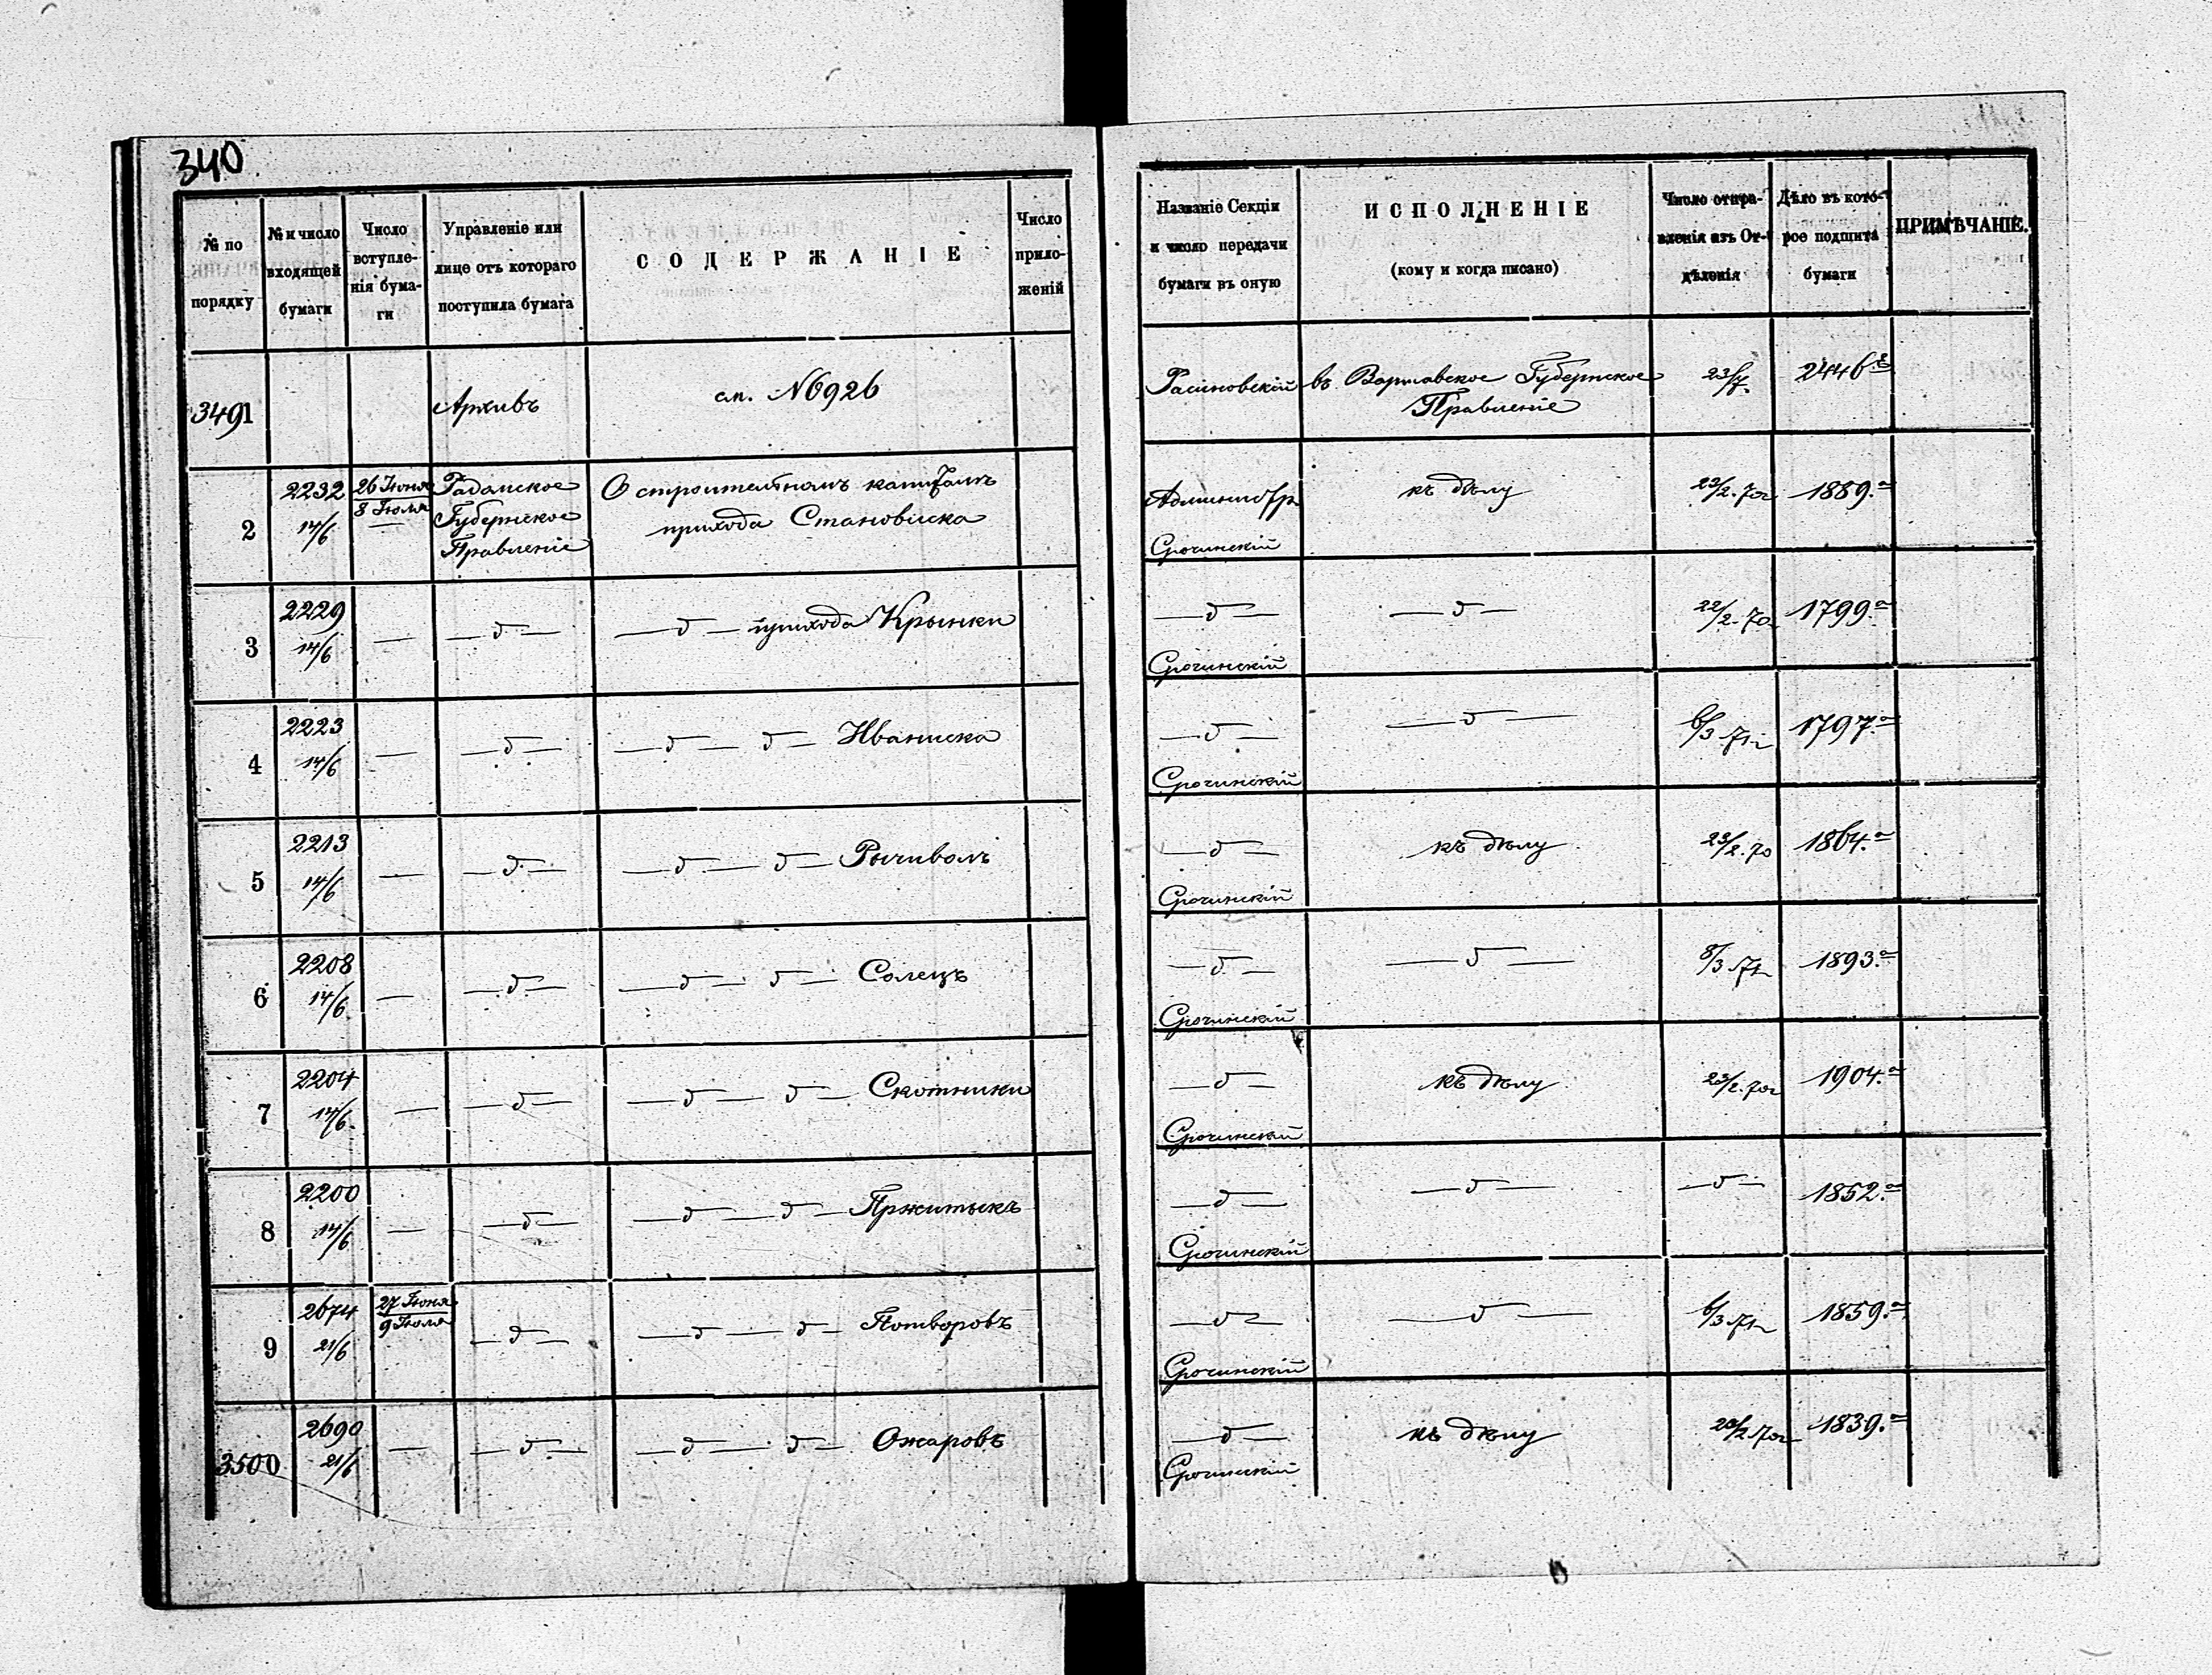 340
№ по порядку
№ и число входящей бумаги
Число вступле-нія бума-ги
Управленіе или лице отъ котораго поступила бумага
СОДЕРЖАНІЕ
Число прило-женій
Названіе Секціи и число передачи бумаги въ оную
ИСПОЛНЕНІЕ
(кому и когда писано)
Число отпра-вленія изъ От-дѣленія
Дѣло въ кото-рое подшита бумаги
ПРИМѢЧАНІЕ.
3491 Архивъ сл. №6926 въ Варшавское Губернское Правленіе 23/7. 2446
2 2232 14/6 26 Іюня 8 Іюля — Радомское Губернское Правленіе О строительномъ капиталѣ прихода Становиска Администр Срочинскій къ дѣлу 23/2. 70 1889.
3 2229 14/6 — — д — — д — прихода Крынки — д — Срочинскій — д — 22/2. 70 1799.
4 2223 14/6 — — д — — д — д — Иваниска — д — Срочинскій — д — 6/3 71 1797.
5 2213 14/6 — — д — — д — д — Рычиволъ — д — Срочинскій къ дѣлу 23/2. 70 1864.
6 2208 14/6 — — д — — д — д — Солецъ — д — Срочинскій — д — 8/3 71 1893.
7 2204 14/6 — — д — — д — д — Скотники — д — Срочинскій къ дѣлу 23/2. 70 1904.
8 2200 14/6 — — д — — д — д — Пржитыкъ — д — Срочинскій — д — — д — 1852.
9 2674 21/6 27 Іюня 9 Іюля — д — — д — д — Потворовъ — д — Срочинскій — д — 6/3 71 1859.
3500 2690 21/6 — — д — — д — д — Ожаровъ — д — Срочинскій къ дѣлу 70 1839.